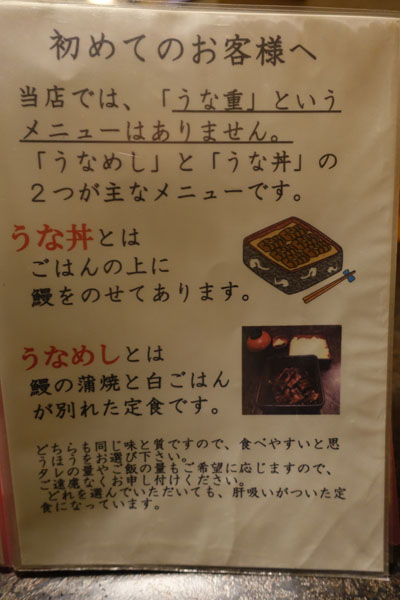 初めてのお客様へ
当店では、「うな重」という
メニューはありません。
「うなめし」と「うな丼」の
２つが主なメニューです。
うな丼とは
ごはんの上に
鰻をのせてあります。
うなめしとは
鰻の蒲焼と白ごはん
が別れた定食です。
どちらも同じ味と質ですので、食べやすいと思
うほうをお選び下さい。
タレの量やご飯の量もご希望に応じますので、
ご遠慮なくお申し付けください。
どれを選んでいただいても、肝吸いがついた定
食になっています。